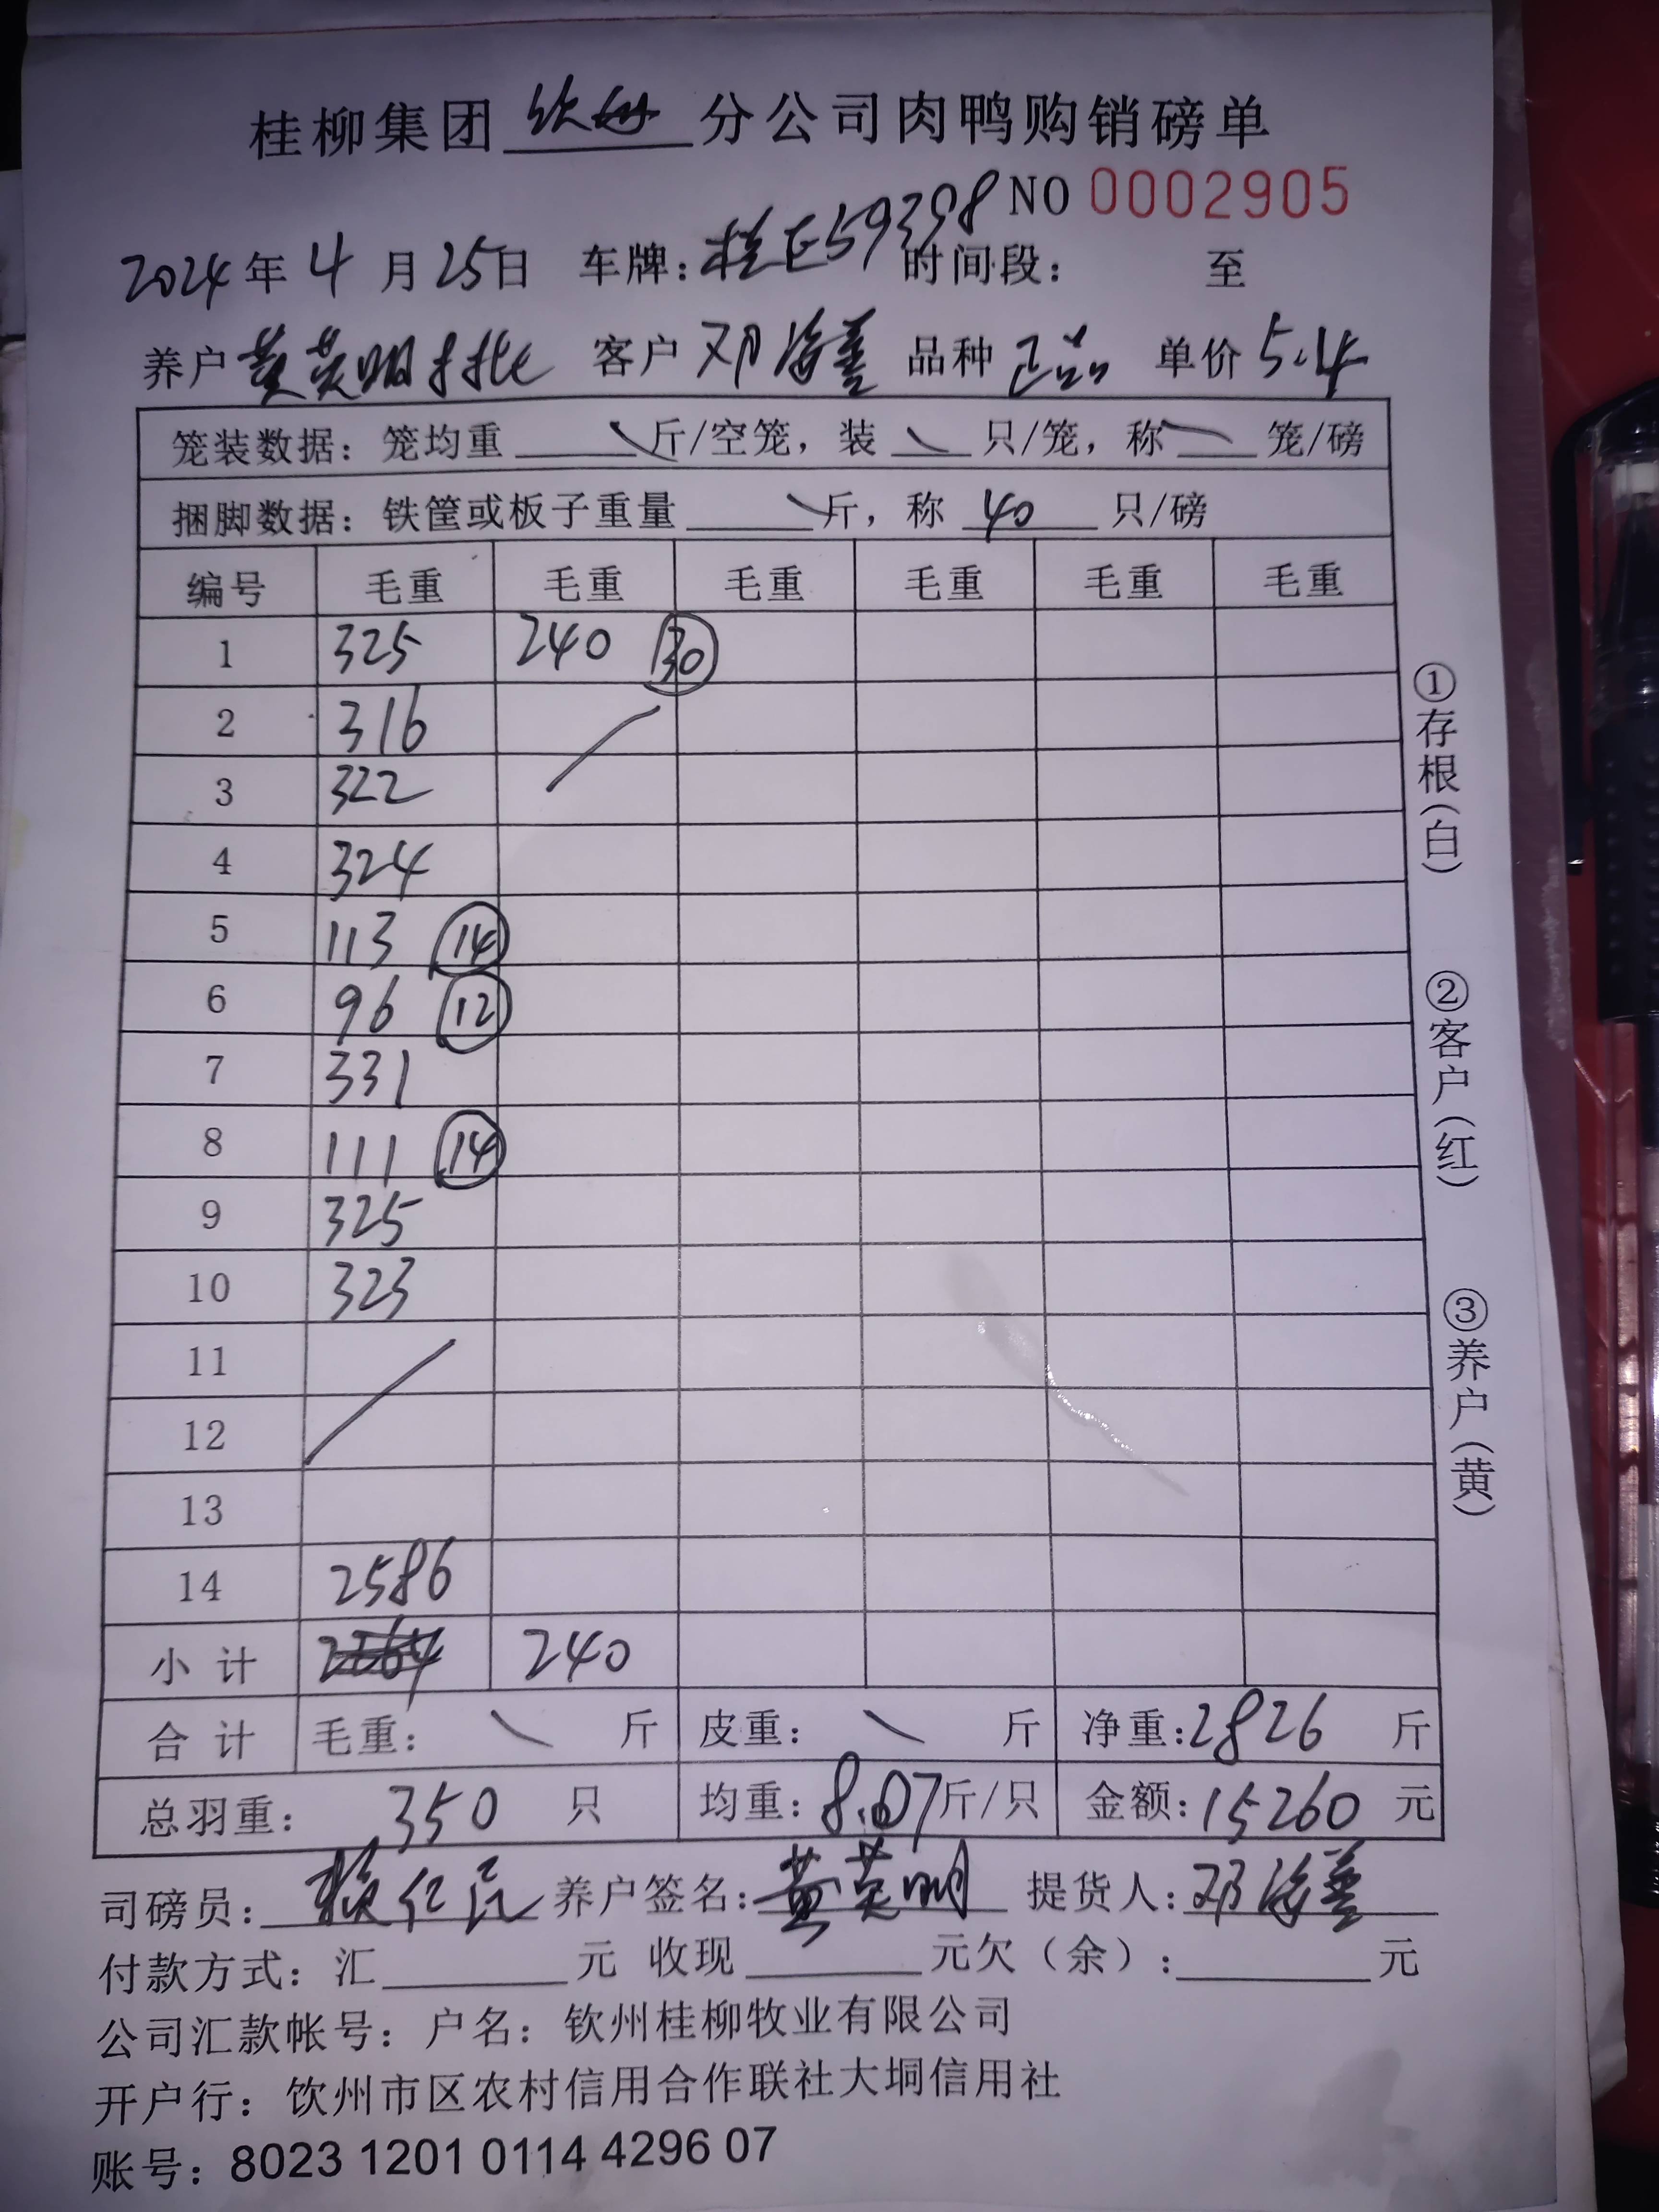 桂柳集团 钦州 分公司肉鸭购销磅单
NO 0002905
2024年 4 月 25日 车牌: 桂E59398 时间段: 至
养户 黄英明 客户 邓海善 品种 正品 单价 5.4
笼装数据: 笼均重 斤/空笼, 装 只/笼, 称 笼/磅
捆脚数据: 铁筐或板子重量 斤, 称 40 只/磅
编号 毛重 毛重 毛重 毛重 毛重 毛重
1 325 240 30
2 316
3 322
4 324
5 113 14
6 96 12
7 331
8 111 14
9 325
10 323
11
12
13
14 2586
小计 240
合计 毛重: 斤 皮重: 斤 净重: 2826 斤
总羽重: 350 只 均重: 8.07斤/只 金额: 15260 元
司磅员: 仁 养户签名: 黄英明 提货人: 邓海善
付款方式: 汇 元 收现 元欠(余): 元
公司汇款帐号: 户名: 钦州桂柳牧业有限公司
开户行: 钦州市区农村信用合作联社大垌信用社
账号: 8023 1201 0114 4296 07
①存根(白)
②客户(红)
③养户(黄)